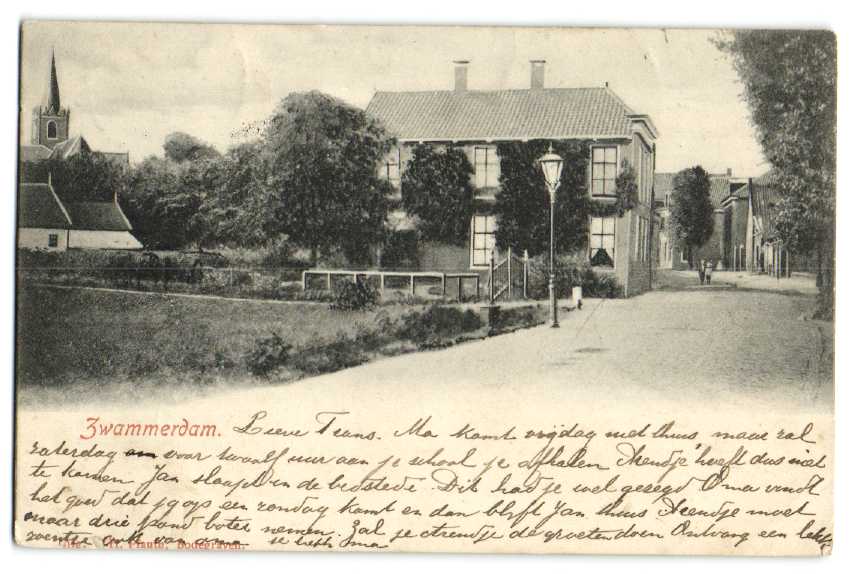 Zwammerdam. Lieve Frans. Ma komt vrijdag niet thuis, maar zal
zaterdag om voor twaalf uur aan je school je afhalen heeft dus niet
te komen Jan slaapt in de bedstede. Dit had je wel gezegd Oma vindt
het goed dat jogops een zondag komt en dan blijft Jan thuis moet
maar drie pond boter nemen. Zal je de groeten doen Ontvang een
zoentje ook van
Uitg. H. Plauts, Bodegraven.